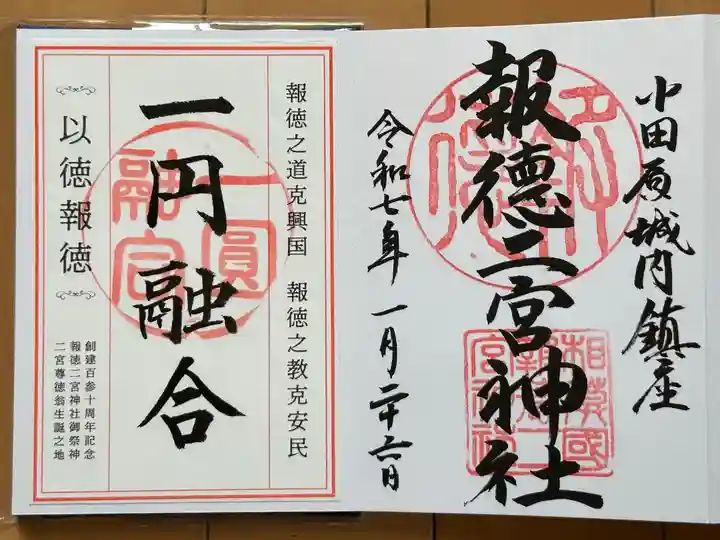 小田原城内鎮座
報徳二宮神社
令和七年 一月二十六日
報徳之道克興国 報徳之教克安民
一円融合
以徳報徳
創建百参十周年記念
報徳二宮神社御祭神
二宮尊徳翁生誕之地
一圓融合